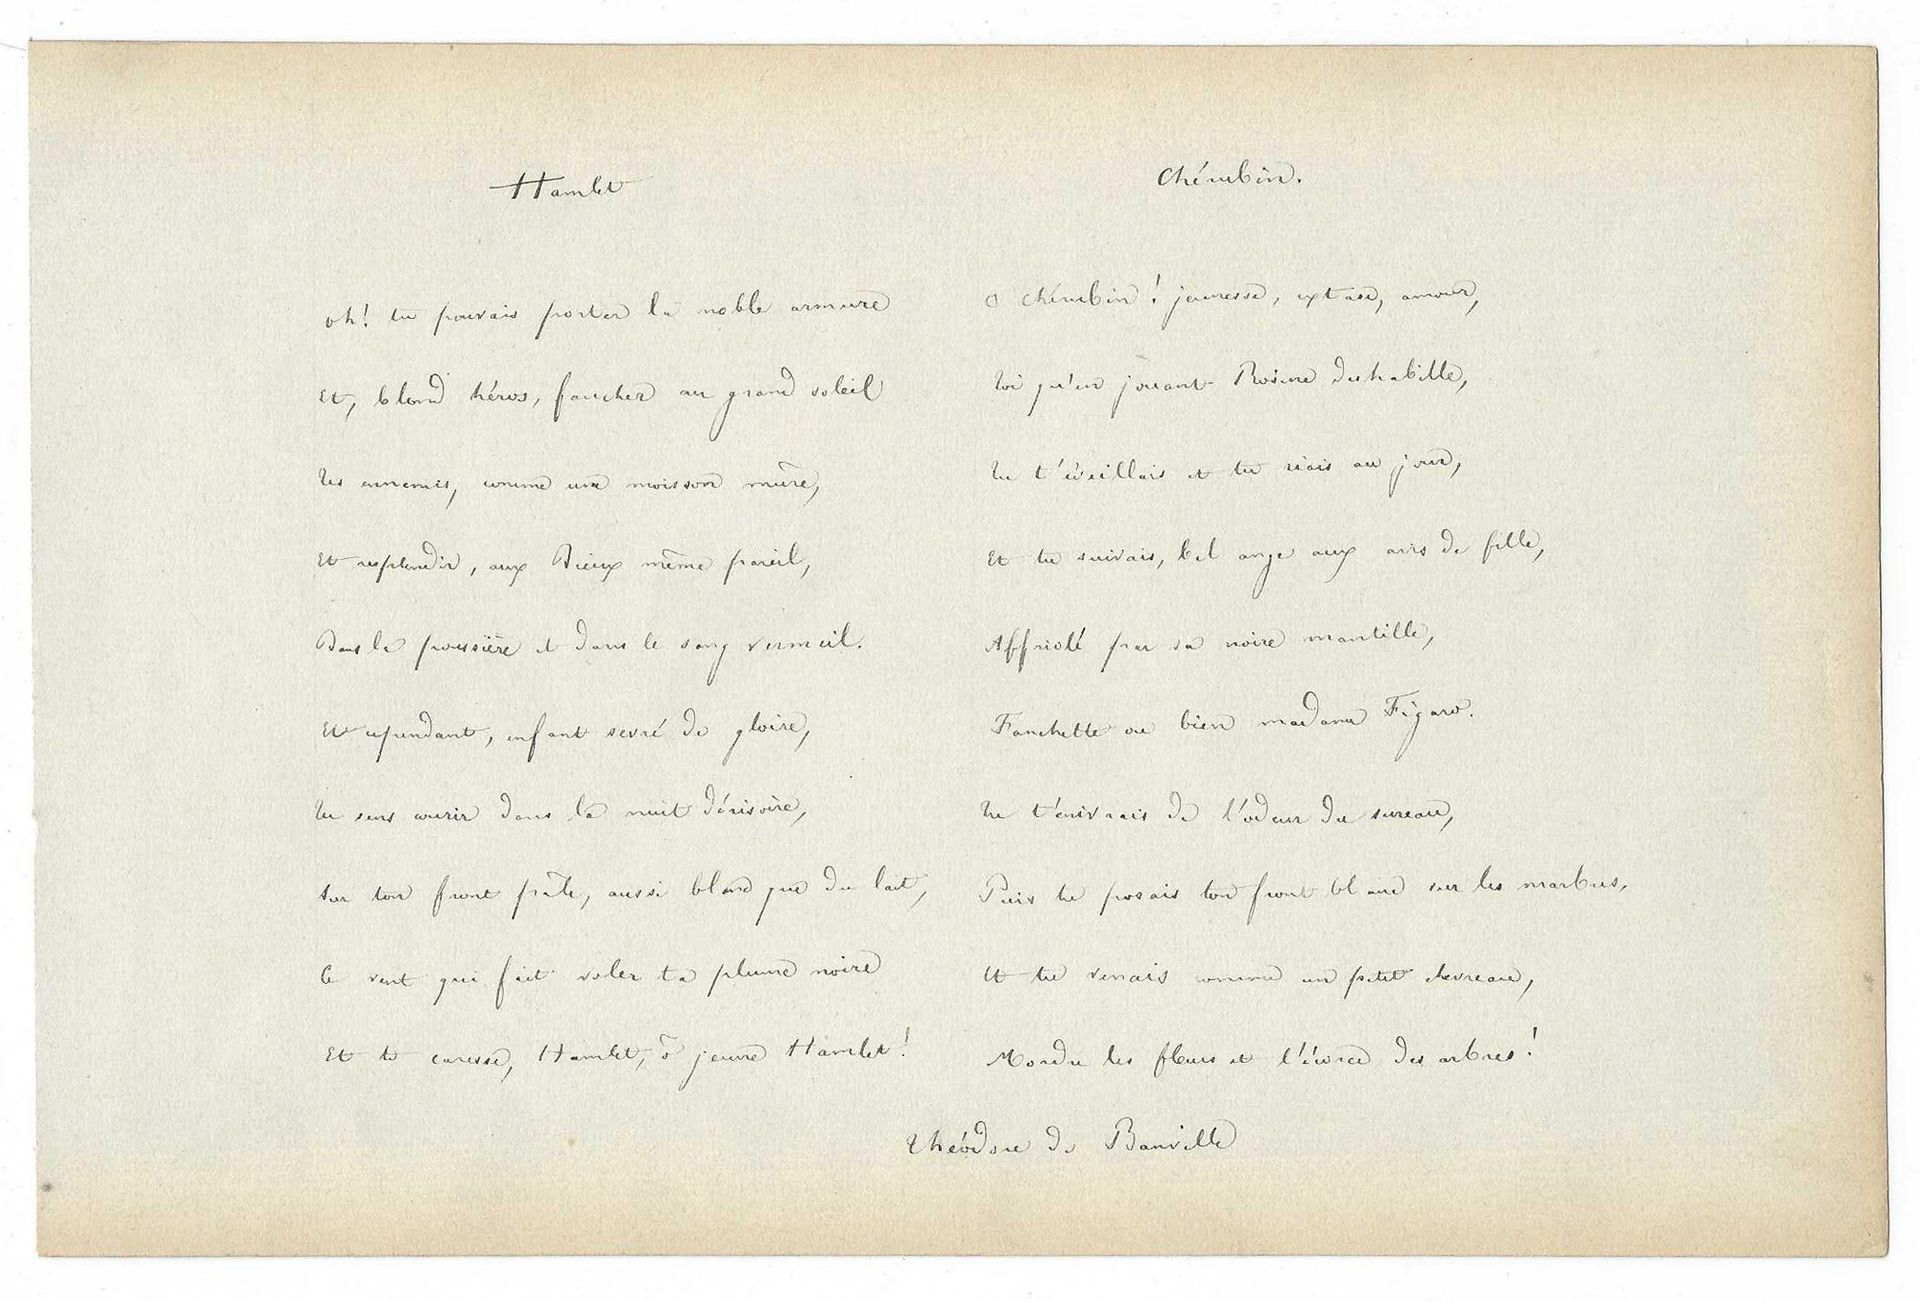 Hamlet
Oh! tu pouvais porter la noble armure
Et, blond héros, faucher au grand soleil
Tes ennemis, comme une moisson mûre,
Et resplendir, aux Dieux même pareil,
Dans la poussière et dans le sang vermeil.
Et cependant, enfant sevré de gloire,
Tu sens courir dans la nuit dérisoire,
Sur ton front pâle, aussi blanc que du lait,
Le vent qui fait voler ta plume noire
Et te caresse, Hamlet, ô jeune Hamlet!
Chérubin.
O Chérubin! jeunesse, extase, amour,
Toi qu'en jouant Rosine deshabille,
Tu t'éveillais et tu riais au jour,
Et tu suivais, bel ange aux airs de fille,
Affriolé par sa noire mantille,
Fanchette ou bien madame Figaro.
Tu t'enivrais de l'odeur du sureau,
Puis tu posais ton front blanc sur les marbres,
Et tu venais comme un petit chevreau,
Mordre les fleurs et l'écorce des arbres!
Théodore de Banville